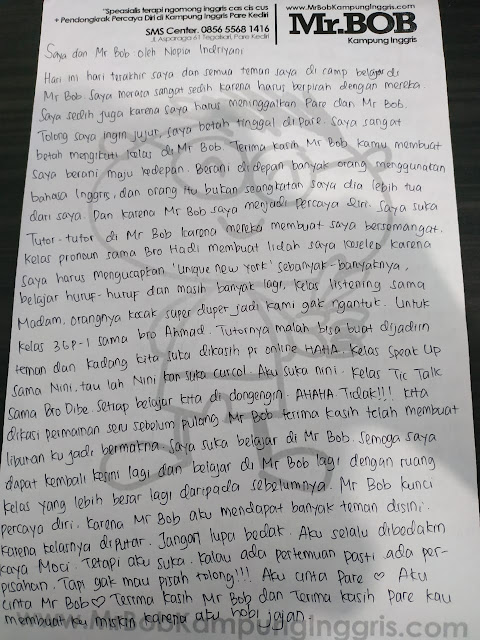 "Spesialis terapi ngomong inggris cas cis cus
+ Pendongkrak Percaya Diri di Kampung Inggris Pare Kediri
SMS Center. 0856 5568 1416
Jl. Asparaga 61 Tegalsari, Pare Kediri
www.MrBobKampungInggris.com
Mr.BOB
Kampung Inggris
Saya dan Mr Bob oleh Nopia Indriyani
Hari ini hari terakhir saya dan semua teman saya di camp belajar di
Mr Bob. Saya merasa sangat sedih karena harus berpisah dengan mereka.
Saya sedih juga karena saya harus meninggalkan Pare dan Mr Bob.
Tolong saya ingin jujur, saya betah tinggal di Pare. Saya sangat
betah mengikuti kelas di Mr Bob. Terima kasih Mr Bob kamu membuat
saya berani maju kedepan. Berani di depan banyak orang menggunakan
bahasa Inggris, dan orang itu bukan seangkatan saya dia lebih tua
dari saya. Dan karena Mr Bob saya menjadi percaya diri. Saya suka
Tutor-tutor di Mr Bob karena mereka membuat saya bersemangat.
Kelas pronoun sama Bro Hadi membuat lidah saya kuseleo karena
saya harus mengucapkan 'unique new york' sebanyak-banyaknya,
belajar huruf-huruf dan masih banyak lagi, kelas listening sama
Madam, orangnya kocak super duper jadi kami gak ngantuk. Untuk
kelas 3GP-1 sama bro Ahmad. Tutornya malah bisa buat dijadiin
teman dan kadang kita suka dikasih pr online HAHA. Kelas Speak Up
sama Nini, tau lah Nini kan suka curcol. Aku suka nini. Kelas Tic Talk
sama Bro Dibe. Setiap belajar kita di dongengin. AHAHA Tidak!!! kita
dikasi permainan seru sebelum pulang. Mr Bob terima kasih telah membuat
liburan ku jadi bermakna. Saya suka belajar di Mr Bob. Semoga saya
dapat kembali kesini lagi dan belajar di Mr Bob lagi dengan ruang
kelas yang lebih besar lagi daripada sebelumnya. Mr Bob kunci
percaya diri. Karena Mr Bob aku mendapat banyak teman disini.
karena kelasnya diputar. Jangan lupa bedak. Aku selalu dibedakin
kaya Moci. Tetapi aku suka. Kalau ada pertemuan pasti ada per-
pisahan. Tapi gak mau pisah tolong!!! Aku cinta Pare ♡ Aku
cinta Mr Bob ♡ Terima kasih Mr Bob dan Terima kasih Pare kau
membuat ku miskin karena aku hobi jajan.
www.MrBobKampungInggris.com